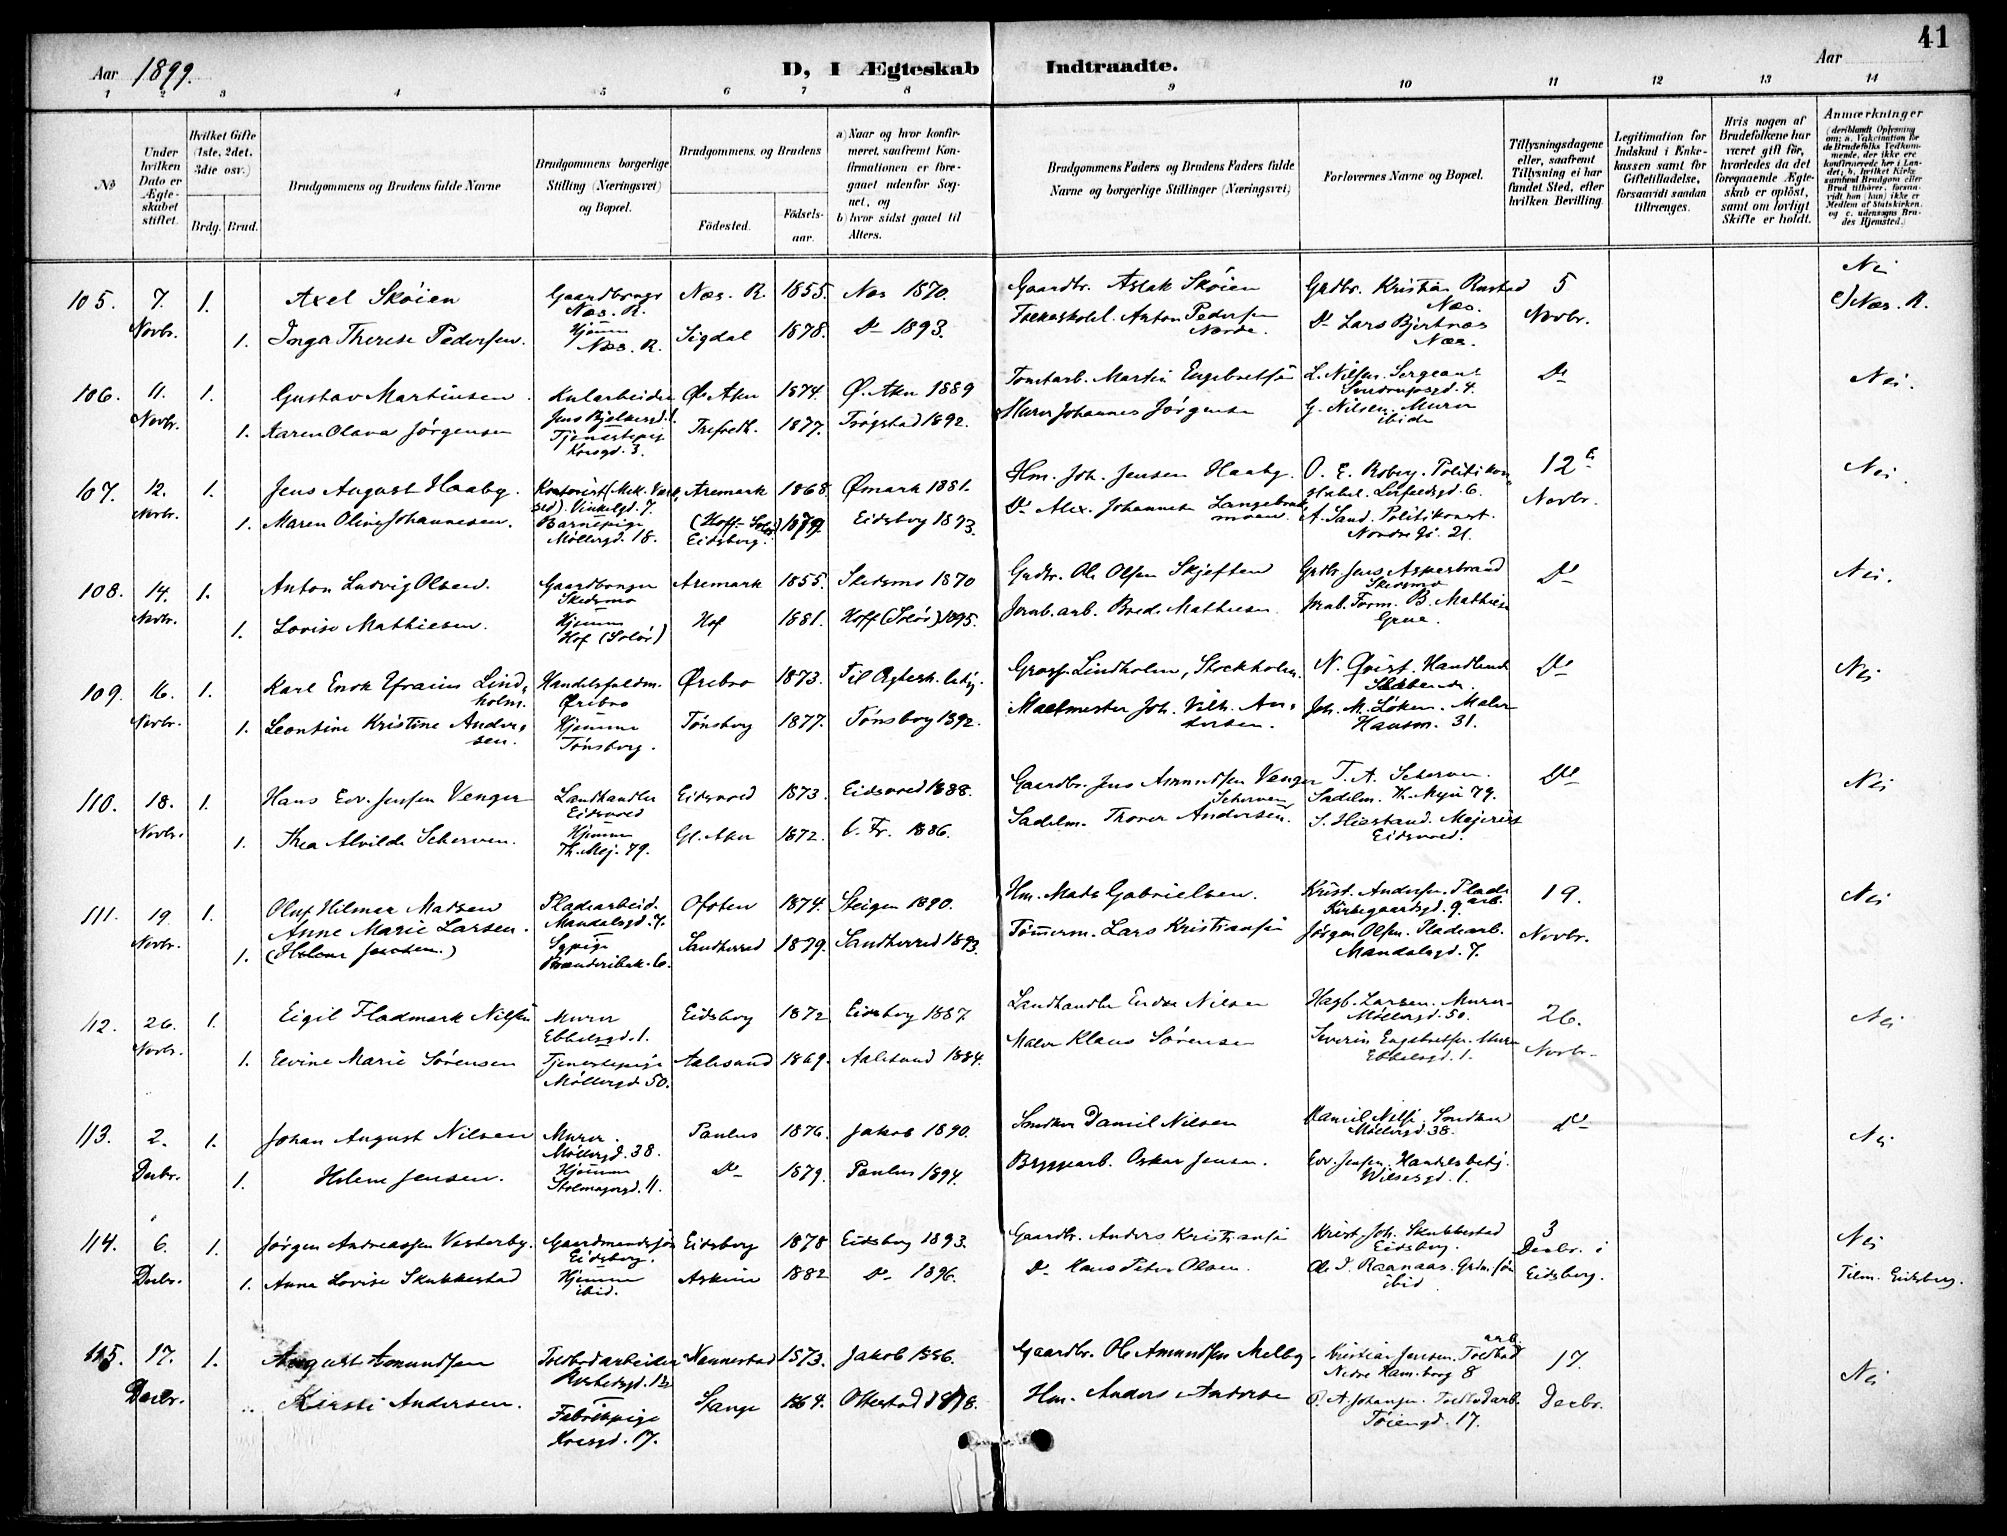 41
Aar 1899.
D, I Ægteskab Indtraadte.
Aar
1 2 3 4 5 6 7 8 9 10 11 12 13 14
No
Under hvilken Dato er Ægteskabet stiftet.
Hvilket Gifte (1ste, 2det, 3die osv.)
Brdg. Brud.
Brudgommens og Brudens fulde Navne
Brudgommens borgerlige Stilling (Næringsvei) og Bopæl.
Brudgommens og Brudens
Födested. Födsels-aar.
a) Naar og hvor konfirmeret, saafremt Konfirmationen er foregaaet udenfor Sognet, og
b) hvor sidst gaaet til Alters.
Brudgommens Faders og Brudens Faders fulde Navne og borgerlige Stillinger (Næringsvei)
Forlovernes Navne og Bopæl.
Tillysningsdagene eller, saafremt Tillysning ei har fundet Sted, efter hvilken Bevilling.
Legitimation for Indskud i Enkekassen samt for Giftetilladelse, forsaavidt saadan tiltrænges.
Hvis nogen af Brudefolkene har været gift för, hvorledes da det foregaaende Ægteskab er oplöst, samt om lovligt Skifte er holdt.
Anmærkninger
105. 7. 1. Axel Skøien Gaardbruger Næs. R. Næs. R. 1855. Næs 1870. Gaardbr. Aslak Skøien Grdbr. Kristian Rustad Næs. 5 Nei
Novbr. 1. Inga Therese Pedersen. Hjemme Næs. R. Sigdal 1878. Do 1893. Anton Pedersen Do Lars Bjertnæs Næs. Novbr. c) Næs. R.
106. 11. 1. Gustav Martinsen. Ø. Aker 1874. Ø. Aker 1889 Martin Engebretsen L. Nilsen. Sergeant 4. Do Nei.
Novbr. 1. Karen Olava Jørgensen Tjenestepige Korsgd. 3. 1877. Trøgstad 1892. Murer Johannes Jørgensen G. Nilsen. Murer ibidem
107. 12. 1. Jens August Haaby. Kontorist (Mek. Værksted). Vinkelgd. 7. Aremark 1868. Ømark 1881. Hm. Joh. Jensen Haaby. O. E. Roberg. Politikonstabel. 6. 12te Nei
Novbr. 1. Maren Oline Johannesen. Barnepige Møllergd. 18. (Hoff-Solør) Eidsberg. 1879. Eidsberg 1893. Do Alex. Johannes A. Sand. Politikonst. Nordre Gd. 21. Novbr.
108. 14. 1. Anton Ludvig Olsen. Gaardbruger Skedsmo Aremark 1855. Skedsmo 1870 Grdbr. Ole Olsen Skjeften Grdbr. Jens Asperstrand Skedsmo Do Nei.
Novbr. 1. Lovise Mathiesen. Hjemme Hof (Solør) Hof 1881. Hoff (Solør) 1895. Jernb. arb. Bred. Mathiesen. Jernb. Form. B. Mathisen Grue.
109. 16. 1. Karl Enok Efraim Lindholm. Handelsfuldm. Ørebro Ørebro 1873. Til Ægtesk. ledig. Gross. Lindholm, Stockholm. N. Qvist. Handlende Do Nei
Novbr. 1. Leontine Kristine Andersen. Hjemme Tønsberg. Tønsberg 1877. Tønsberg 1892. Joh. Vilh. Andersen. Joh. M. Løken. Maler Hausm. 31.
110. 18. 1. Hans Edv. Jensen Venger Landhandler Eidsvold Eidsvold 1873. Eidsvold 1888. Gaardbr. Jens Amundsen Venger T. A. Scherven. Sadelm. Th. Mejer 79. Do Nei
Novbr. 1. Thea Alvilde Scherven. Hjemme Th. Mej. 79. Gl. Aker 1872. V. Fr. 1886. Sadelm. Trover Andersen Scherven. Mejerist Eidsvold.
111. 19 1. Oluf Hilmar Madsen Pladearbeid. Mandalsgd. 7. Ofoten 1874. Steigen 1890. Hm. Mads Gabrielsen. Krist. Andersen. Pladearb. Kirkegaardsgd. 9. 19. Nei
Novbr. 1. Anne Marie Larsen. Sypige Sandherred 1879. Sandherred 1893. Tømmerm. Lars Kristiansen Jørgen Olsen. Pladearb. Mandalsgd. 7. Novbr.
112. 26. 1. Eigil Fladmark Nilsen Murer Ebbelsgd. 1. Eidsberg 1872 Eidsberg 1887. Landhandler Endre Nilsen Hagb. Larsen. Murer. Møllergd. 50. 26. Nei
Novbr. 1. Elvine Marie Sørensen Tjenestepige Møllergd. 50. Aalesund 1869. Aalesund 1884. Maler Klaus Sørensen Severin Engebretsen. Murer Ebbelsgd. 1. Novbr.
113. 2. 1. Johan August Nilsen Murer. Møllergd. 38. Paulus 1876. Jakob 1890. Snedker Daniel Nilsen Daniel Nilsen. Snedker Møllergd. 38. Do Nei
Decbr. 1. Helene Jensen. Hjemme Stolmagergd. 11. Do 1879. Paulus 1894. Bryggearb. Oskar Jensen. Edv. Jensen. Handelsbetj. Wilsesgd. 1.
114. 6. 1. Jørgen Andreassen Vesterby. Gaardmandssøn Eidsberg. Eidsberg 1878 Eidsberg 1893. Gaardbr. Anders Kristiansen Krist. Joh. Skubbestad Eidsberg. 3 Decbr. i Nei
Decbr. 1. Anna Lovise Skubbestad Hjemme ibid. Askim 1882 Do 1896. Do Hans Peter Olsen. Ole I. Raanaas. Grdm.søn ibid Eidsberg. Tilm. Eidsberg.
115. 17. 1. August Amundsen Toldbodarbeider Nannestad 1873. Jakob 1886. Gaardbr. Ole Amundsen Melby. Kristian Jensen. Toldbodarb. Nedre Hamborg 8 17. Nei
Decbr. Kirsti Andersen. Fabrikpige Korsgd. 17. Stange 1864. Ottestad 1878. Hm. Anders Andersen P. A. Johansen. Toldbodarb. Tøiengd. 17. Decbr.